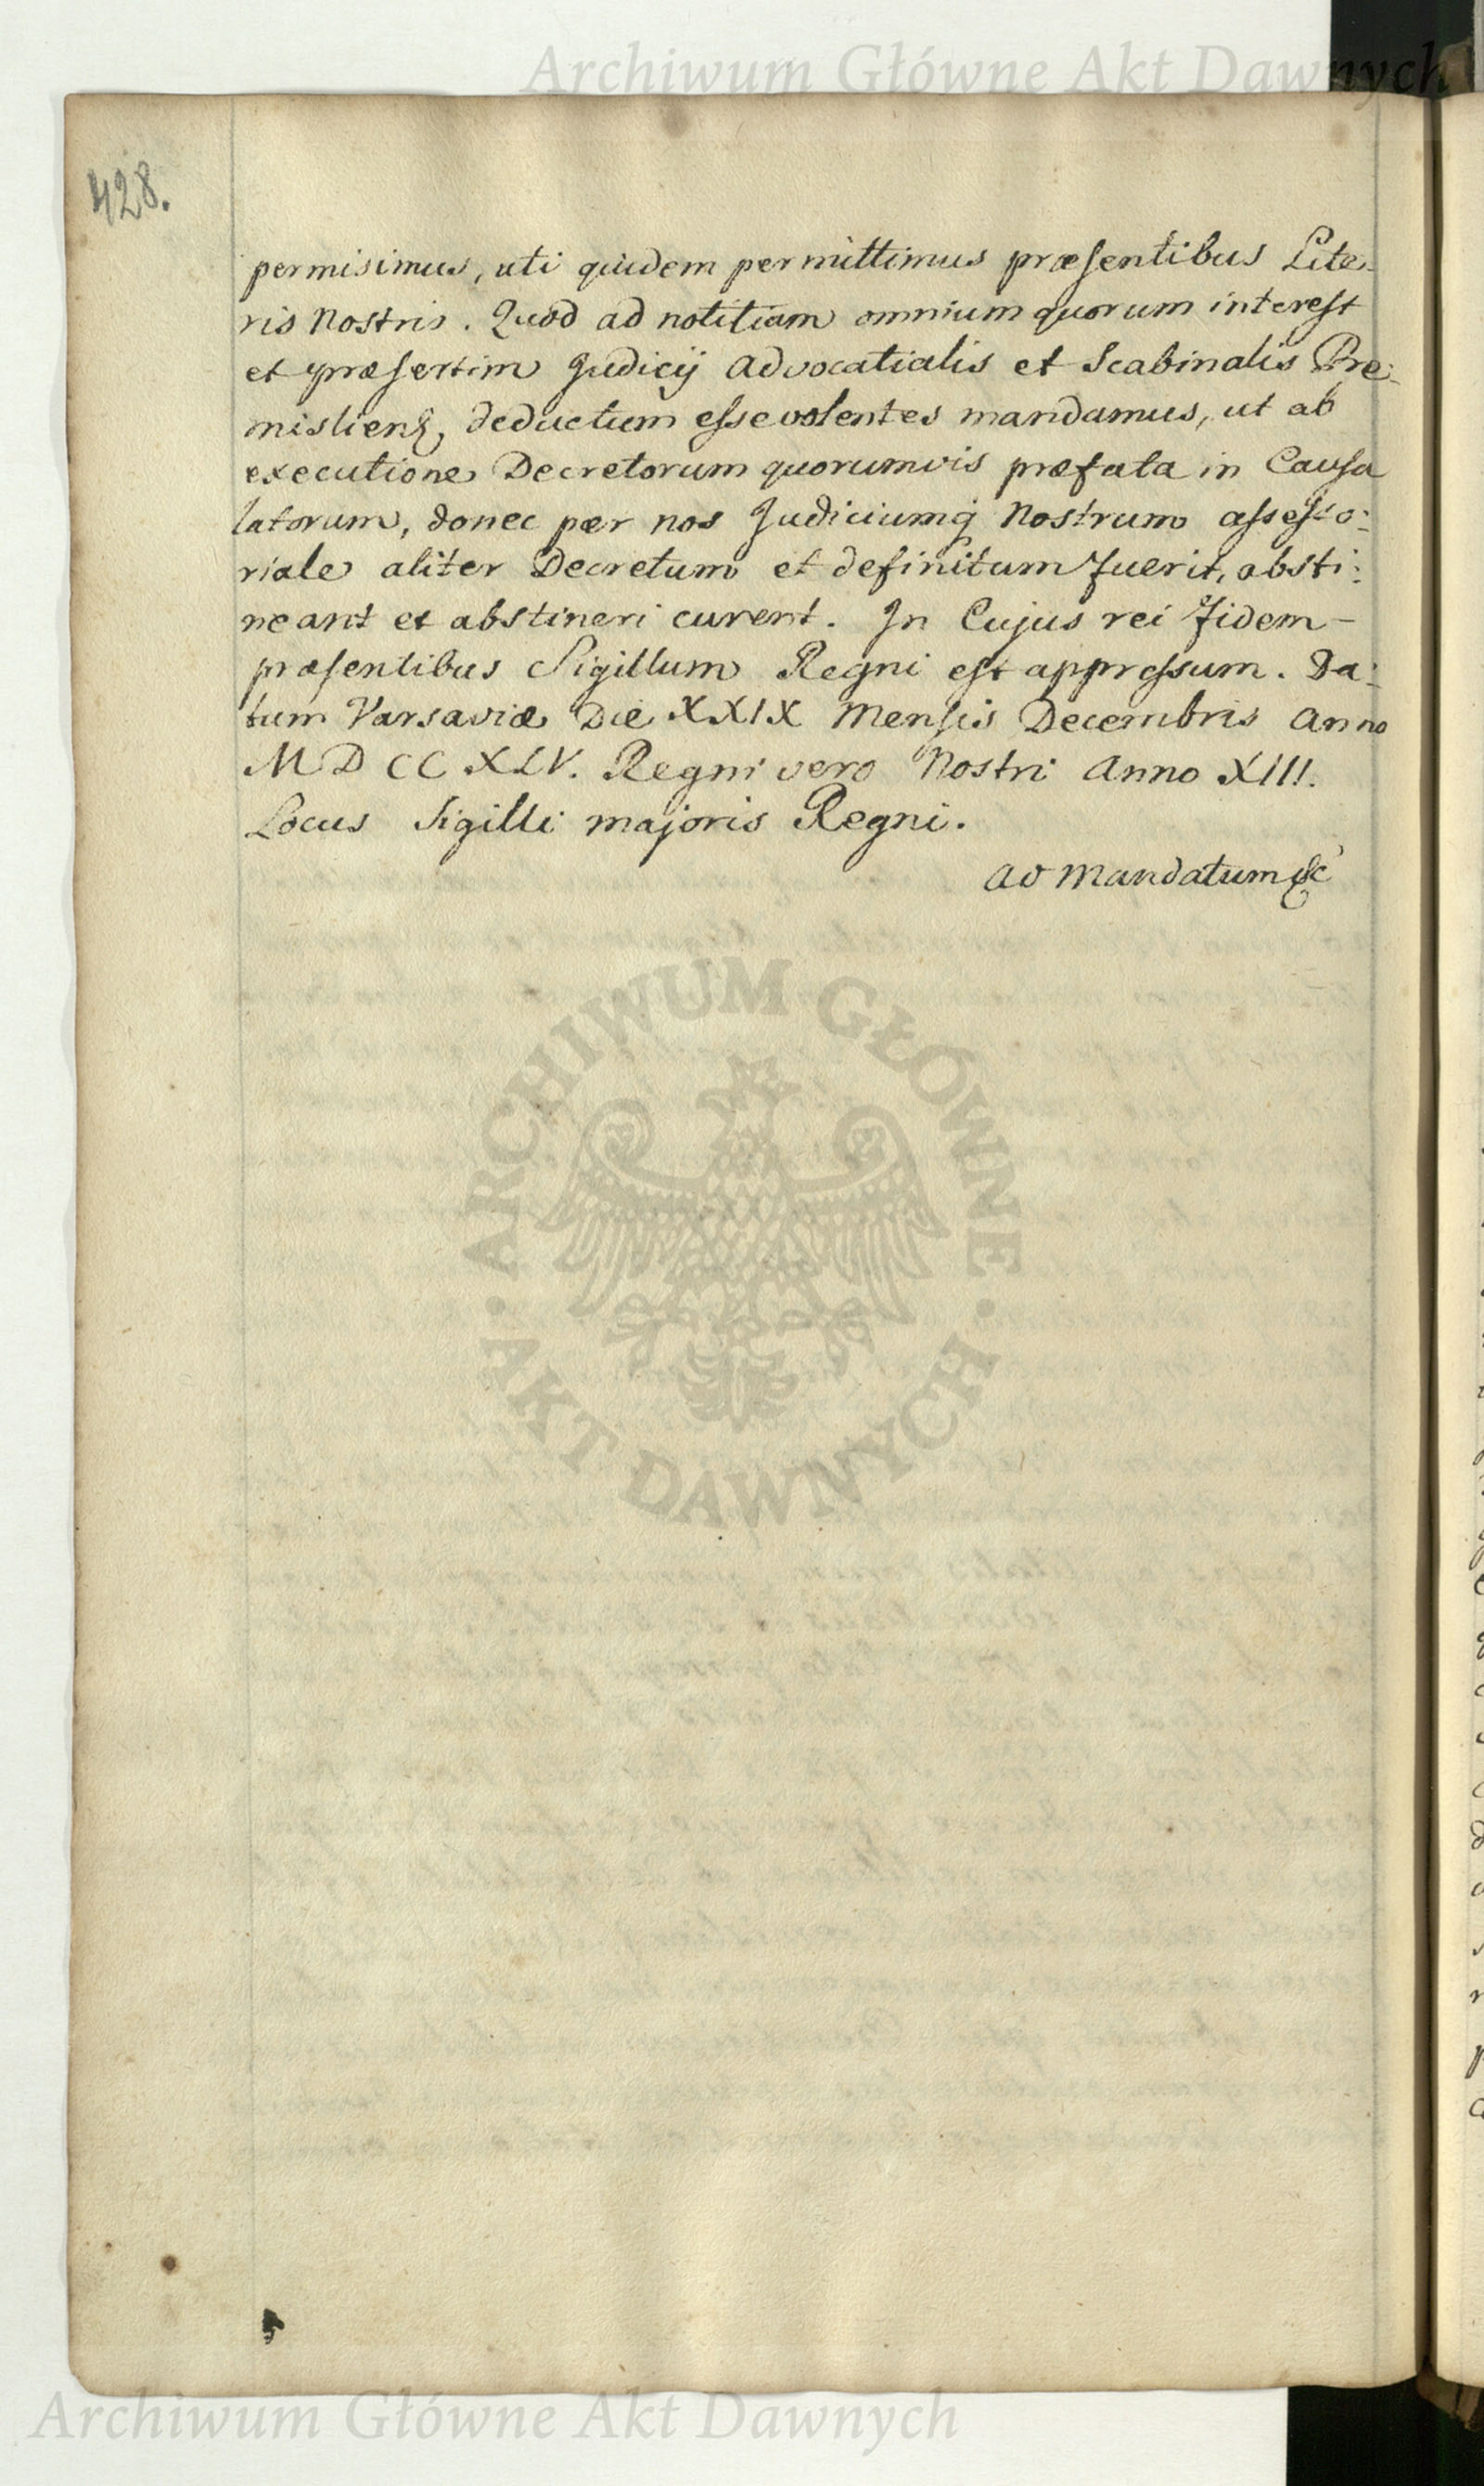 Archiwum Główne Akt Dawnych
428.
permisimus, uti quidem permittimus præsentibus Lite-
ris Nostris. Quod ad notitiam omnium quorum interest
et præsertim Judicij Advocatialis et Scabinalis Pre-
misliens, deductum esse volentes mandamus, ut ab
executione Decretorum quorumvis præfata in Causa
latorum, donec per nos Judiciumq Nostrum assesso-
riale aliter Decretum et definitum fuerit, absti-
neant et abstineri curent. In Cujus rei fidem -
præsentibus Sigillum Regni est appressum. Da-
tum Varsaviæ Die XXIX Mensis Decembris Anno
MDCCXLV. Regni vero Nostri Anno XIII.
Locus Sigilli majoris Regni.
Ad Mandatum &c
ARCHIWUM GŁÓWNE
AKT DAWNYCH
Archiwum Główne Akt Dawnych